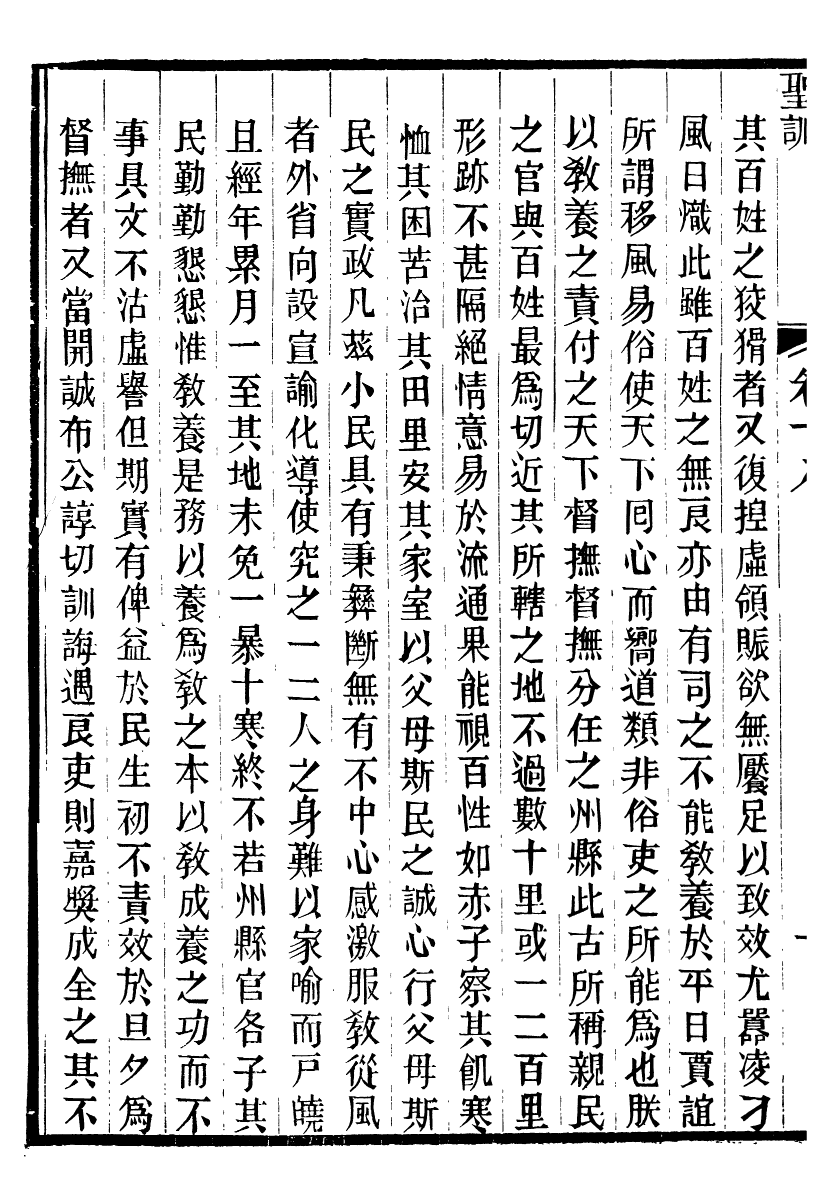 聖訓
其百姓之狡猾者又復揑虛領賑欲無饜足以致效尤囂凌刁
風日熾此雖百姓之無良亦由有司之不能敎養於平日賈誼
所謂移風易俗使天下囘心而嚮道類非俗吏之所能爲也朕
以敎養之責付之天下督撫督撫分任之州縣此古所稱親民
之官與百姓最爲切近其所轄之地不過數十里或一二百里
形跡不甚隔絕情意易於流通果能視百性如赤子察其飢寒
恤其困苦治其田里安其家室以父母斯民之誠心行父母斯
民之實政凡茲小民具有秉彝斷無有不中心感激服敎從風
者外省向設宣諭化導使究之一二人之身難以家喻而戸曉
且經年累月一至其地未免一暴十寒終不若州縣官各子其
民勤勤懇懇惟敎養是務以養爲敎之本以敎成養之功而不
事具文不沽虛譽但期實有俾益於民生初不責效於旦夕爲
督撫者又當開誠布公諄切訓誨遇良吏則嘉獎成全之其不